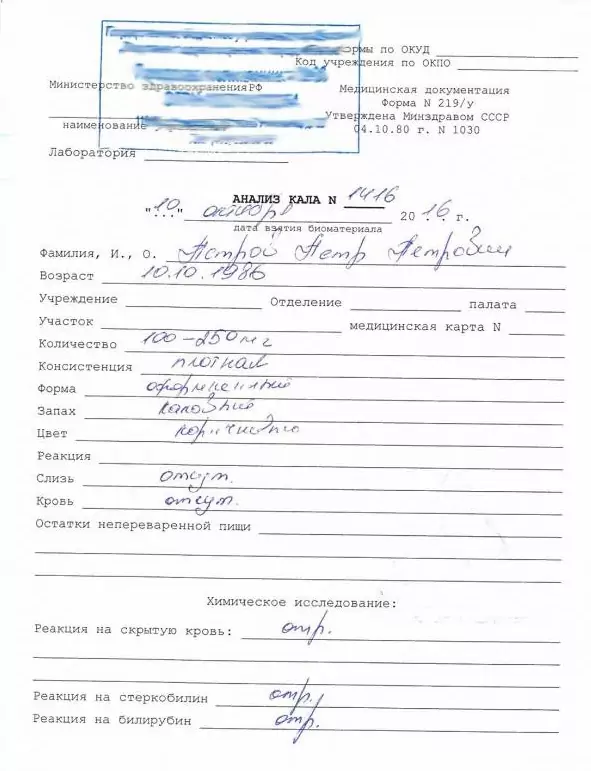 формы по ОКУД
Код учреждения по ОКПО
Министерство здравоохранения РФ
Медицинская документация
Форма N 219/у
наименование
Утверждена Минздравом СССР
04.10.80 г. N 1030
Лаборатория
АНАЛИЗ КАЛА N 1416
"10" октября 2016 г.
дата взятия биоматериала
Фамилия, И., О. Петр Петрович
Возраст 10.10.1986
Учреждение Отделение палата
Участок медицинская карта N
Количество 100-250 мг
Консистенция плотная
Форма оформленный
Запах каловый
Цвет коричнево
Реакция
Слизь отсут.
Кровь отсут.
Остатки непереваренной пищи
Химическое исследование:
Реакция на скрытую кровь: отр.
Реакция на стеркобилин отр.
Реакция на билирубин отр.